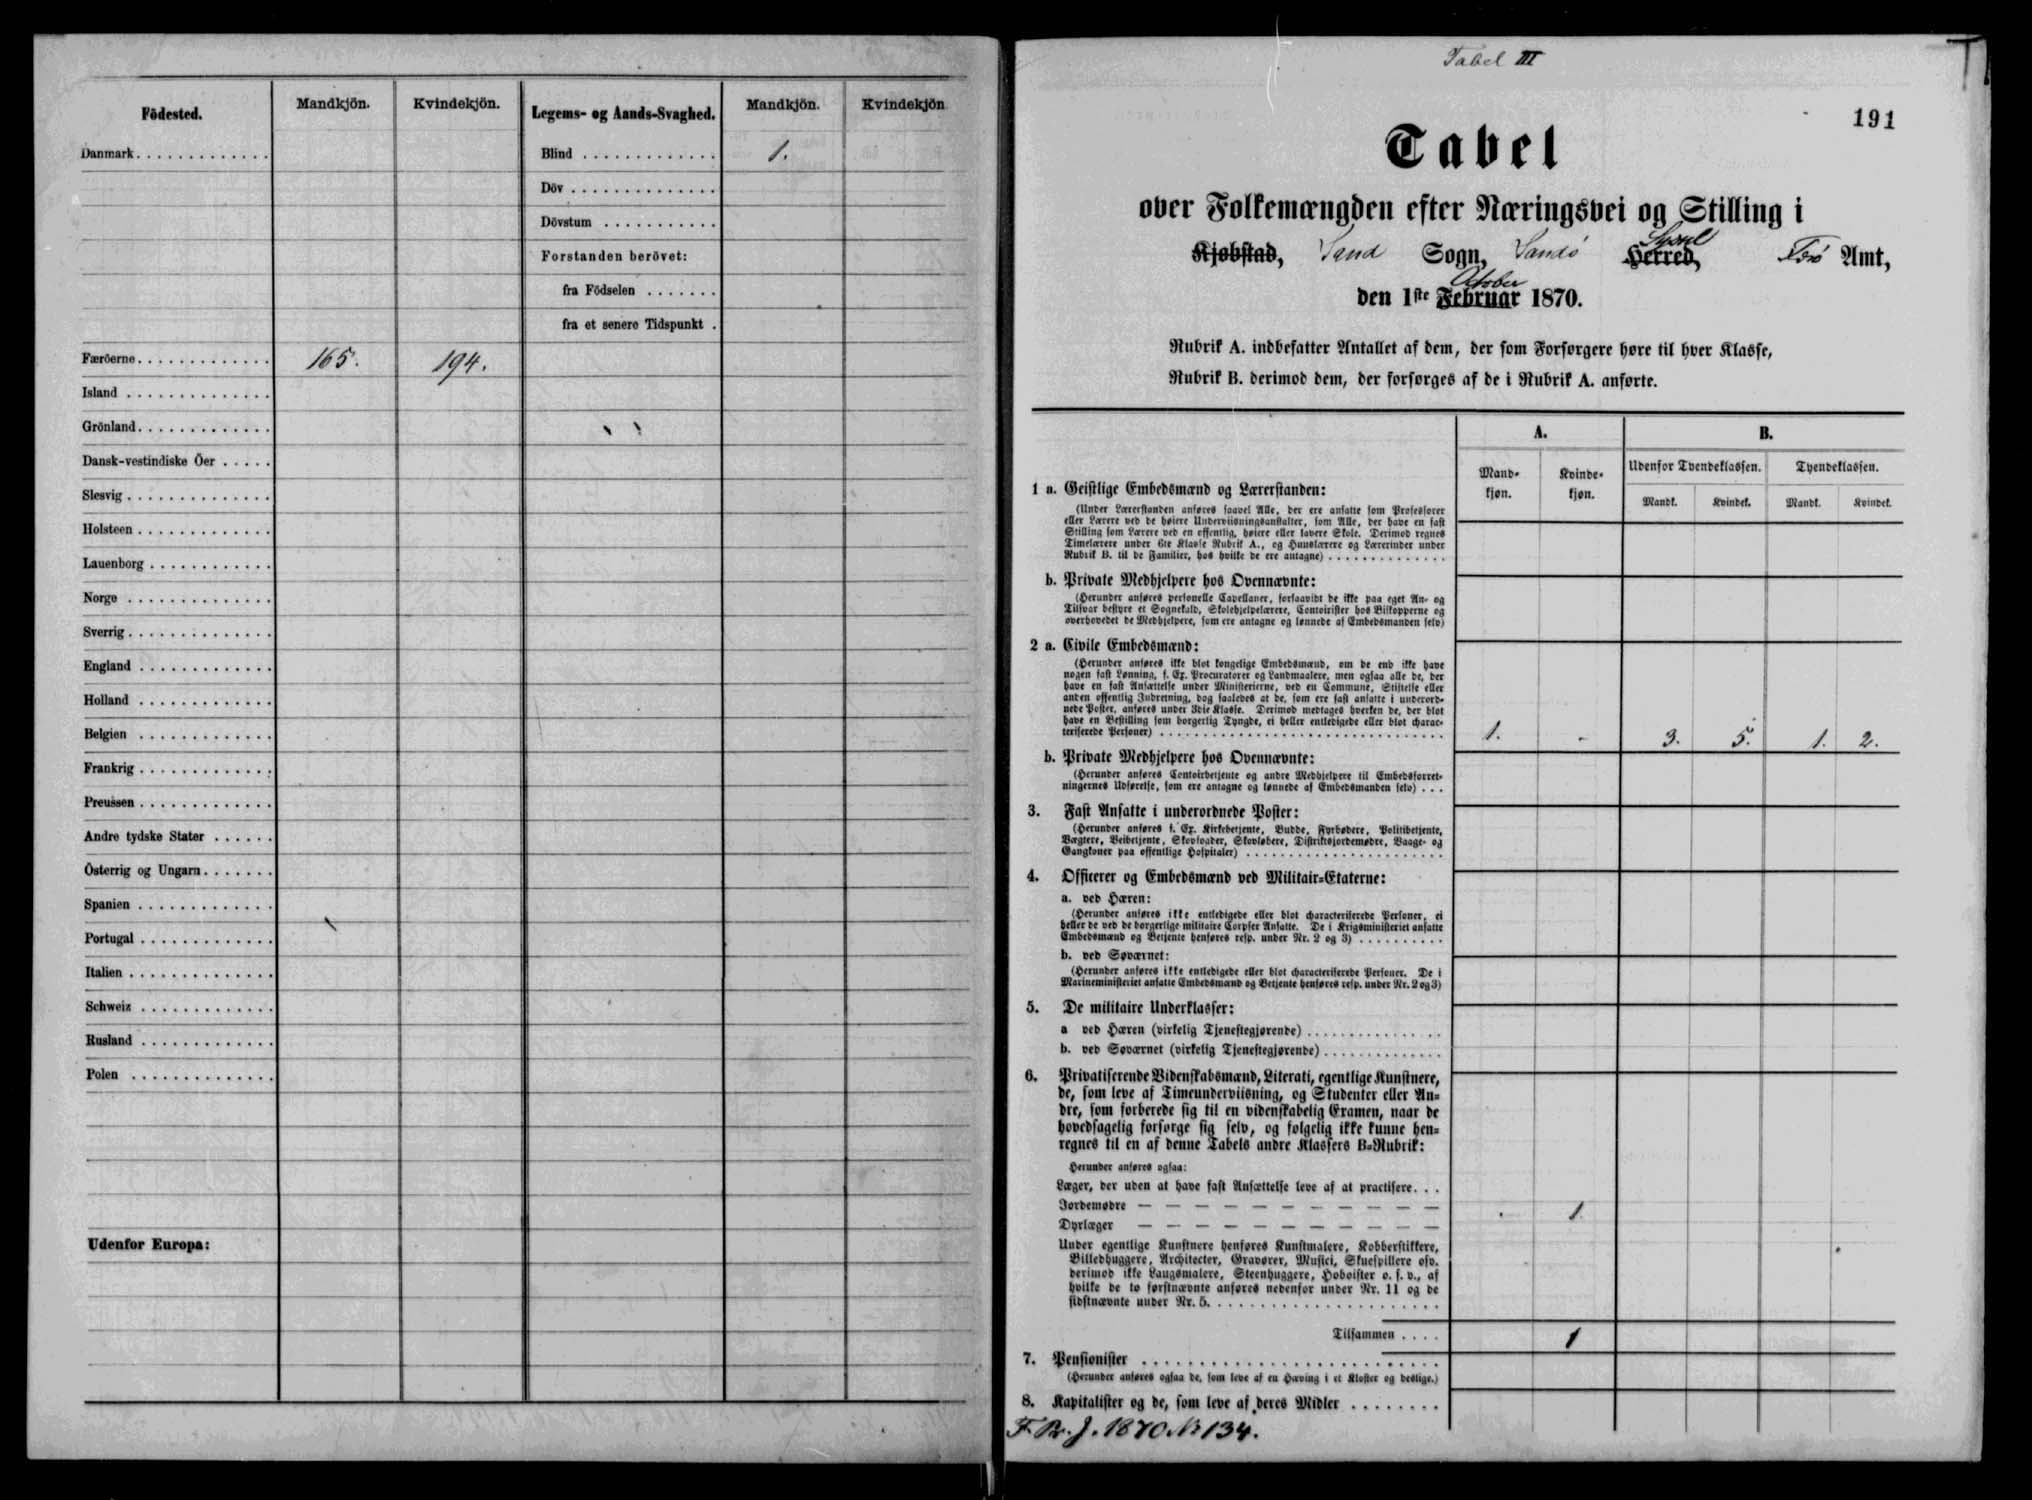 Födested. Mandkjön. Kvindekjön. Legems- og Aands-Svaghed. Mandkjön. Kvindekjön
Danmark . . . . . . . . . . . . . Blind . . . . . . . . . . . . . 1.
Döv . . . . . . . . . . . . . .
Dövstum . . . . . . . . . . .
Forstanden berövet:
fra Födselen . . . . . . .
fra et senere Tidspunkt .
Færöerne . . . . . . . . . . . . . 165. 194.
Island . . . . . . . . . . . . . .
Grönland . . . . . . . . . . . . .
Dansk-vestindiske Öer . . . . .
Slesvig . . . . . . . . . . . . . .
Holsteen . . . . . . . . . . . . .
Lauenborg . . . . . . . . . . . .
Norge . . . . . . . . . . . . . .
Sverrig . . . . . . . . . . . . . .
England . . . . . . . . . . . . .
Holland . . . . . . . . . . . . .
Belgien . . . . . . . . . . . . .
Frankrig . . . . . . . . . . . . .
Preussen . . . . . . . . . . . . .
Andre tydske Stater . . . . . .
Österrig og Ungarn . . . . . . .
Spanien . . . . . . . . . . . . .
Portugal . . . . . . . . . . . . .
Italien . . . . . . . . . . . . . .
Schweiz . . . . . . . . . . . . .
Rusland . . . . . . . . . . . . .
Polen . . . . . . . . . . . . . .
Udenfor Europa:
Tabel III
191
Tabel
over Folkemængden efter Næringsvei og Stilling i
Kjøbstad, Sand Sogn, Sandö Herred, Syssel Færö Amt,
den 1ste Februar October 1870.
Rubrik A. indbefatter Antallet af dem, der som Forsørgere høre til hver Klasse,
Rubrik B. derimod dem, der forsørges af de i Rubrik A. anførte.
A. B.
Mandkjøn. Kvindekjøn. Udenfor Tyendeklassen. Tyendeklassen.
Mandk. Kvindek. Mandk. Kvindek.
1 a. Geistlige Embedsmænd og Lærerstanden:
(Under Lærerstanden anføres saavel Alle, der ere ansatte som Professorer
eller Lærere ved de høiere Underviisningsanstalter, som Alle, der have en fast
Stilling som Lærere ved en offentlig, høiere eller lavere Skole. Derimod regnes
Timelærere under 6te Klasse Rubrik A., og Huuslærere og Lærerinder under
Rubrik B. til de Familier, hos hvilke de ere antagne) . . . . . . . . . . . . . .
b. Private Medhjelpere hos Ovennævnte:
(Herunder anføres personelle Capellaner, forsaavidt de ikke paa eget An- og
Tilsvar bestyre et Sognekald, Skolehjelpelærere, Contoirister hos Biskopperne og
overhovedet de Medhjelpere, som ere antagne og lønnede af Embedsmanden selv)
2 a. Civile Embedsmænd:
(Herunder anføres ikke blot kongelige Embedsmænd, om de end ikke have
nogen fast Lønning, f. Ex. Procuratorer og Landmaalere, men ogsaa alle de, der
have en fast Ansættelse under Ministerierne, ved en Commune, Stiftelse eller
anden offentlig Indretning, dog saaledes at de, som ere fast ansatte i underord-
nede Poster, anføres under 3die Klasse. Derimod medtages hverken de, der blot
have en Bestilling som borgerlig Tyngde, ei heller entledigede eller blot charac-
teriserede Personer) . . . . . . . . . . . . . . . . . . . . . . . . . . . . . . 1. - 3. 5. 1. 2.
b. Private Medhjelpere hos Ovennævnte:
(Herunder anføres Contoirbetjente og andre Medhjelpere til Embedsforret-
ningernes Udførelse, som ere antagne og lønnede af Embedsmanden selv) . . .
3. Fast Ansatte i underordnede Poster:
(Herunder anføres f. Ex. Kirkebetjente, Budde, Fyrbødere, Politibetjente,
Vægtere, Veibetjente, Skovfogder, Skovløbere, Distriktsjordemødre, Vaage- og
Gangkoner paa offentlige Hospitaler) . . . . . . . . . . . . . . . . . . . . . .
4. Officerer og Embedsmænd ved Militair-Etaterne:
a. ved Hæren:
(Herunder anføres ikke entledigede eller blot characteriserede Personer, ei
heller de ved de borgerlige militaire Corpser Ansatte. De i Krigsministeriet ansatte
Embedsmænd og Betjente henføres resp. under Nr. 2 og 3) . . . . . . . . . .
b. ved Søværnet:
(Herunder anføres ikke entledigede eller blot characteriserede Personer. De i
Marineministeriet ansatte Embedsmænd og Betjente henføres resp. under Nr. 2 og 3)
5. De militaire Underklasser:
a ved Hæren (virkelig Tjenestegjørende) . . . . . . . . . . . . . . . .
b. ved Søværnet (virkelig Tjenestegjørende) . . . . . . . . . . . . . .
6. Privatiserende Videnskabsmænd, Literati, egentlige Kunstnere,
de, som leve af Timeunderviisning, og Studenter eller An-
dre, som forberede sig til en videnskabelig Examen, naar de
hovedsagelig forsørge sig selv, og følgelig ikke kunne hen-
regnes til en af denne Tabels andre Klassers B-Rubrik:
Herunder anføres ogsaa:
Læger, der uden at have fast Ansættelse leve af at practisere. . .
Jordemødre — — — — — — — — — — . 1.
Dyrlæger — — — — — — — — — —
Under egentlige Kunstnere henføres Kunstmalere, Kobberstikkere,
Billedhuggere, Architecter, Gravører, Musici, Skuespillere osv.
derimod ikke Laugsmalere, Steenhuggere, Hoboister o. s. v., af
hvilke de to førstnævnte anføres nedenfor under Nr. 11 og de
sidstnævnte under Nr. 5. . . . . . . . . . . . . . . . . . . . . .
Tilsammen . . . . 1
7. Pensionister . . . . . . . . . . . . . . . . . . . . . . . . . .
(Herunder anføres ogsaa de, som leve af en Hæving i et Kloster og deslige.)
8. Kapitalister og de, som leve af deres Midler . . . . . . . .
F. Pr. J. 1870 № 134.